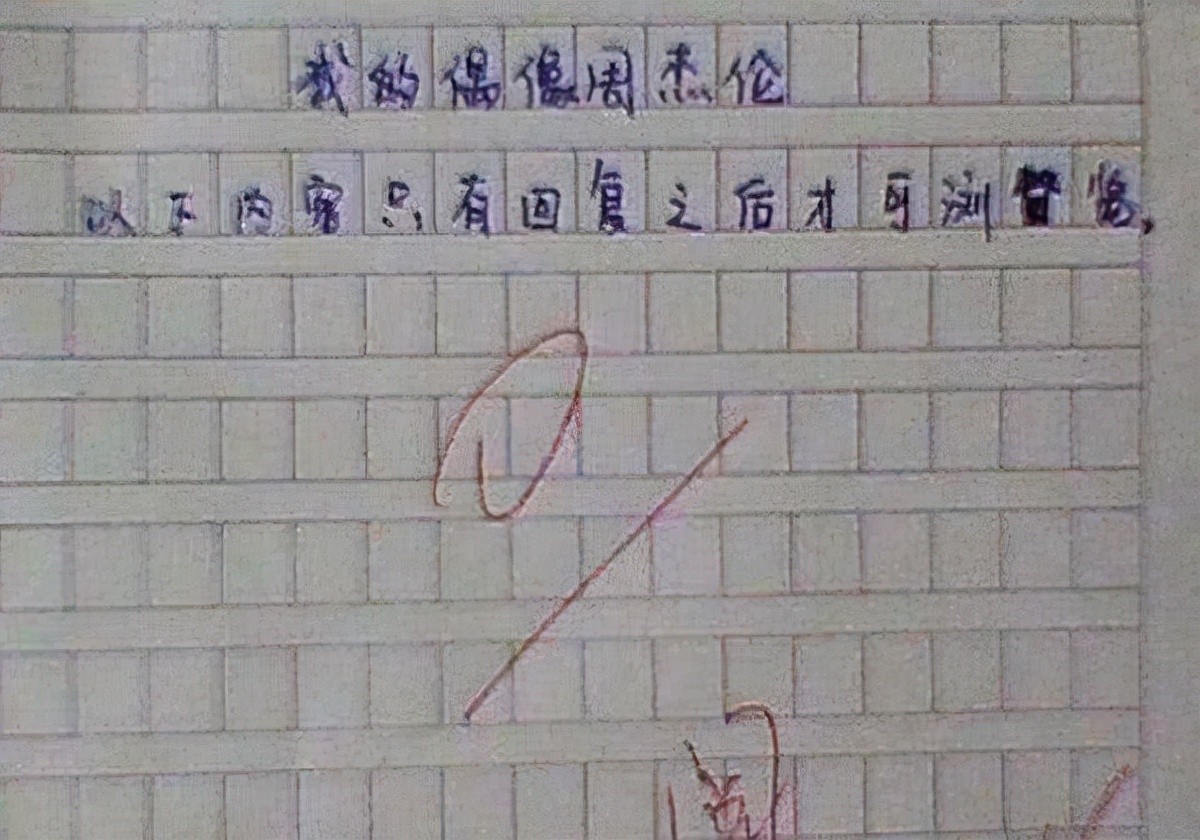 我的偶像周杰伦
以下内容只有回复之后才可浏览,
0
阅